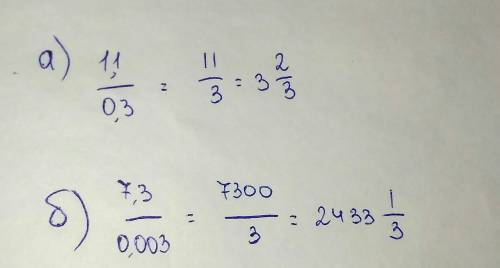 а) 1,1/0,3 = 11/3 = 3 2/3
б) 7,3/0,003 = 7300/3 = 2433 1/3